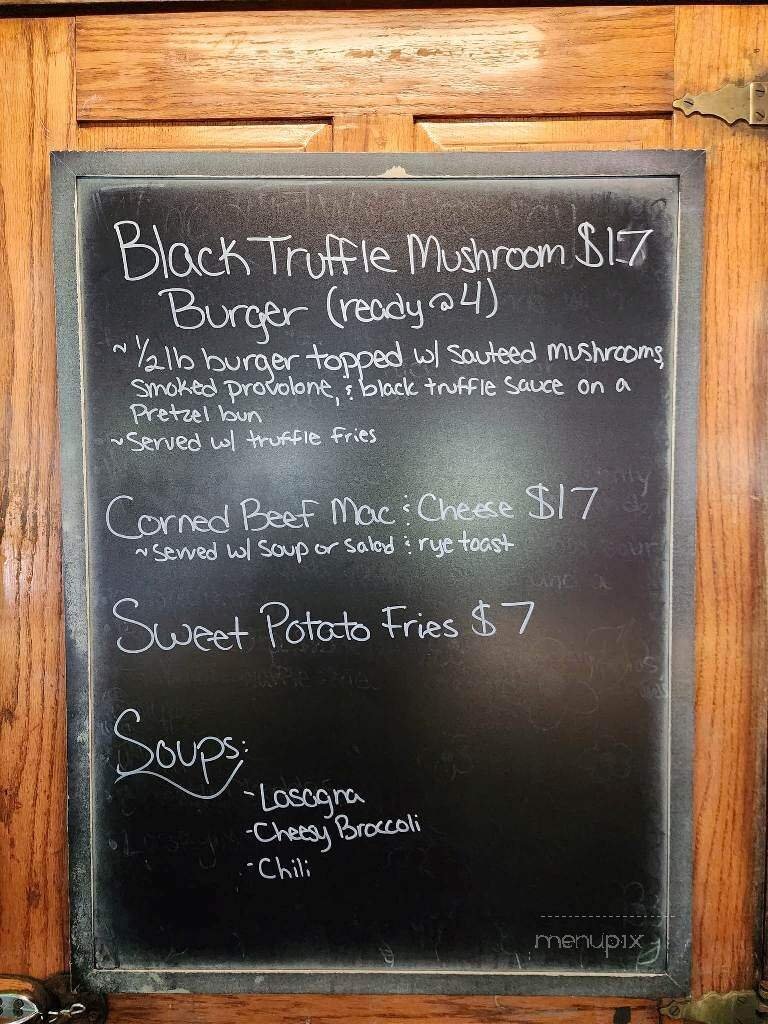 Black Truffle Mushroom $17
Burger (ready @ 4)
~ 1/2 lb burger topped w/ sauteed mushrooms,
smoked provolone, & black truffle sauce on a
Pretzel bun
~ Served w/ truffle fries
Corned Beef Mac & Cheese $17
~ served w/ soup or salad & rye toast
Sweet Potato Fries $7
Soups:
- Lasagna
- Cheesy Broccoli
- Chili
menupix